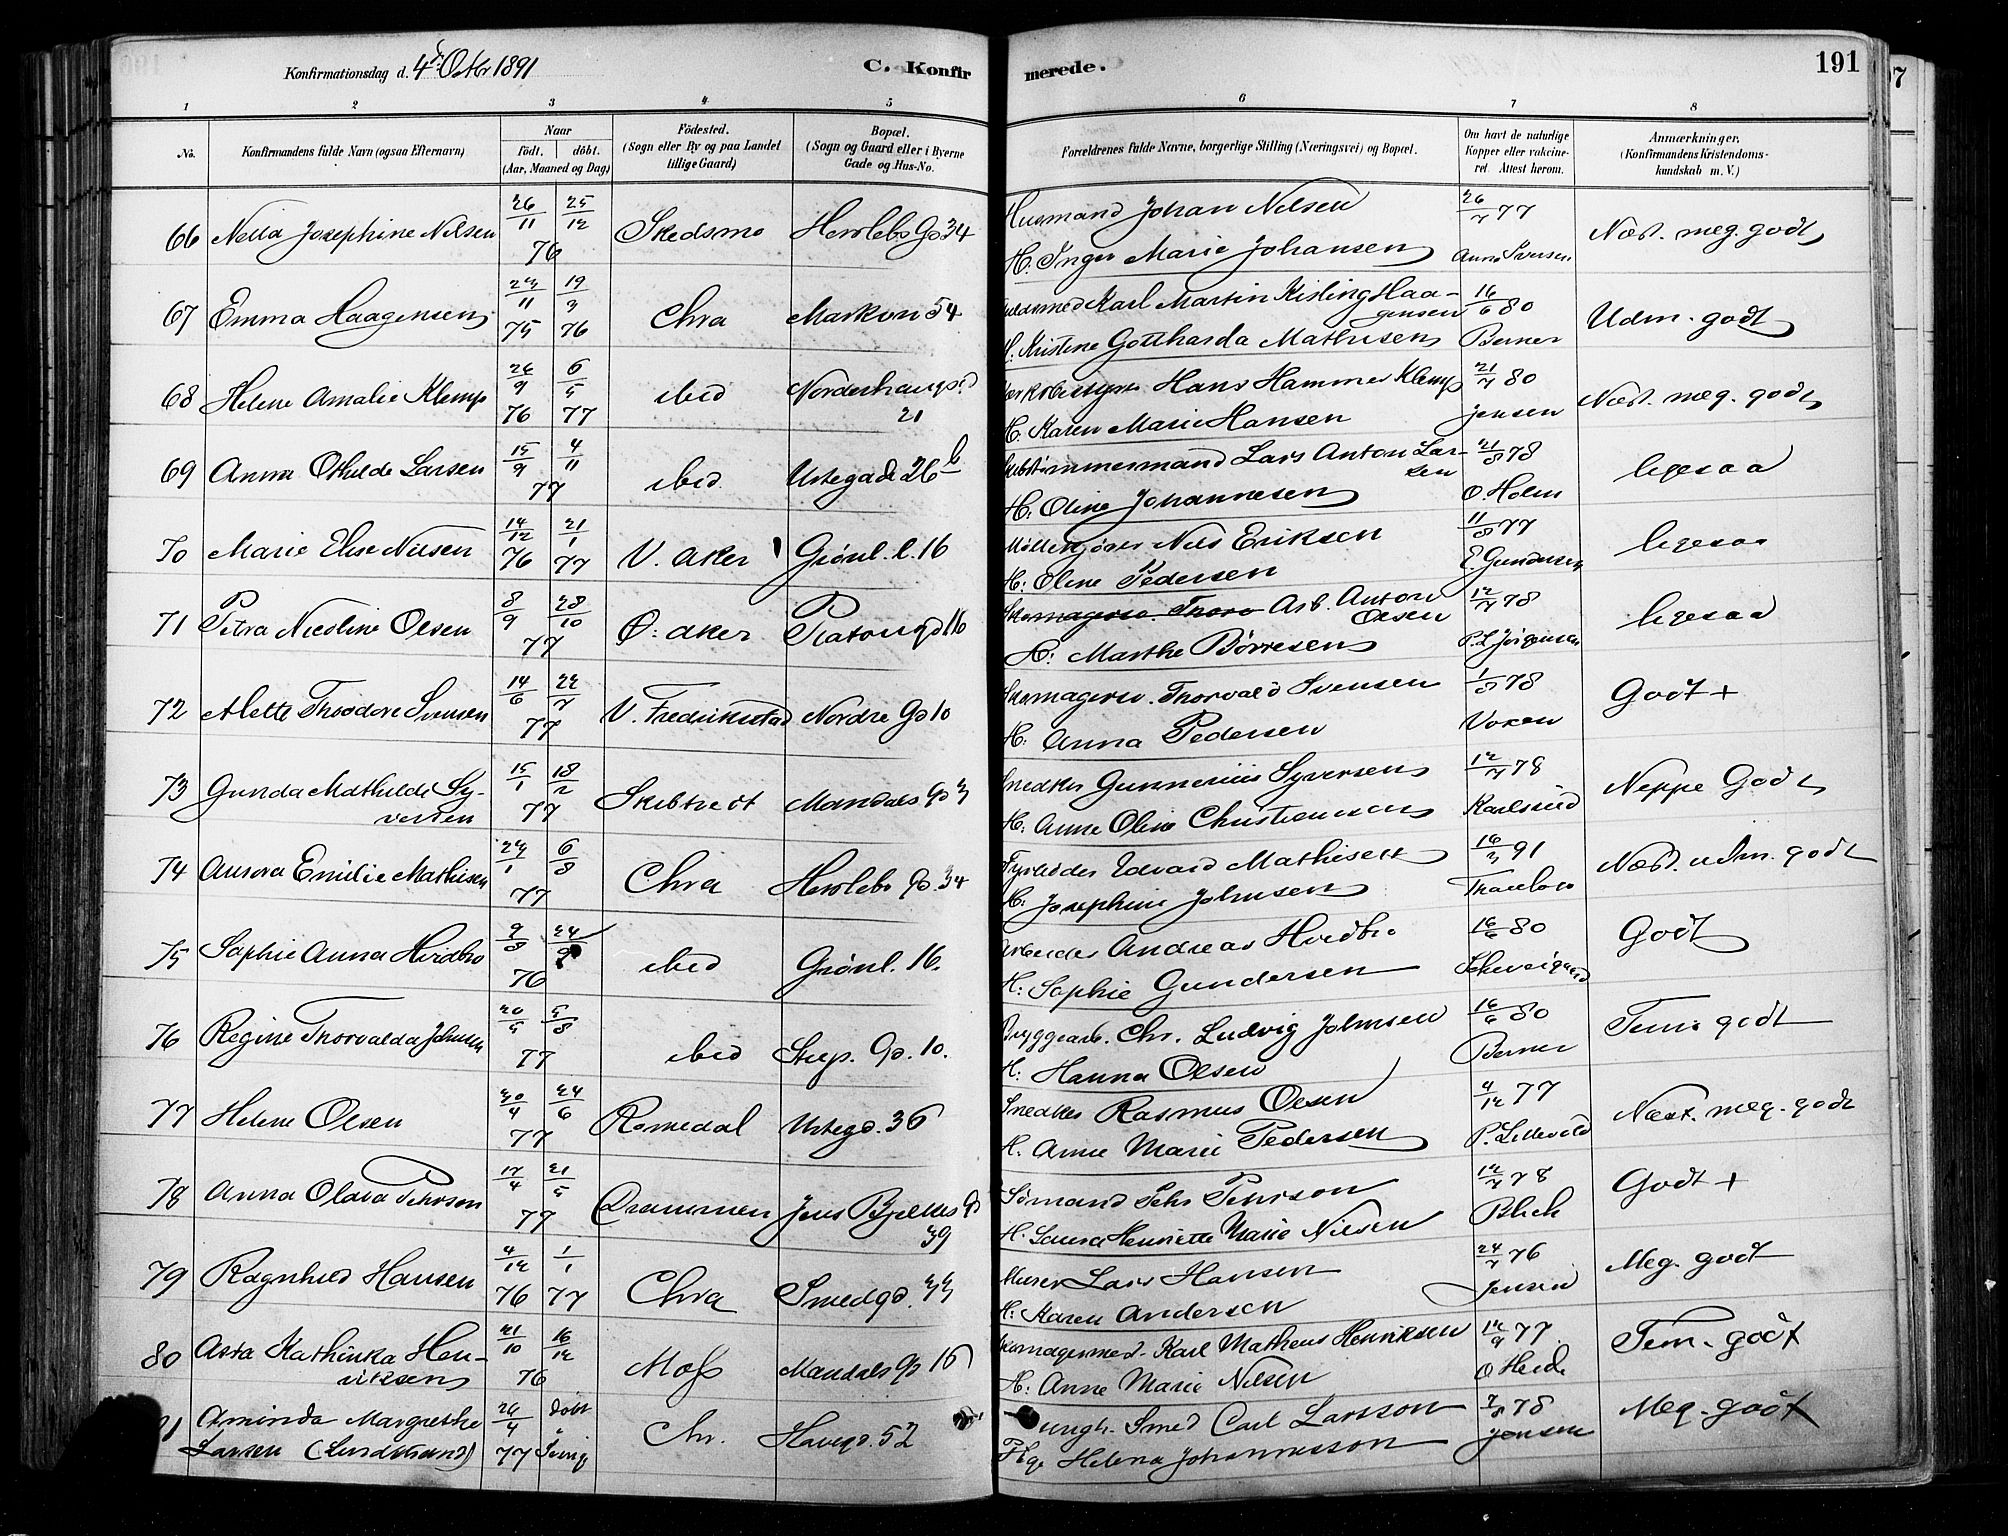 Konfirmationsdag d. 4de Octbr 1891 C. Konfirmerede. 191
1 2 3 4 5 6 7 8
No. Konfirmandens fulde Navn (ogsaa Efternavn) Naar födt. döbt. (Aar, Maaned og Dag) Födested. (Sogn eller By og paa Landet tillige Gaard) Bopæl. (Sogn og Gaard eller i Byerne Gade og Hus-No. Forældrenes fulde Navne, borgerlige Stilling (Næringsvei) og Bopæl. Om havt de naturlige Kopper eller vakcineret Attest herom. Anmærkninger. (Konfirmandens Kristendomskundskab m. V.)
66 Nella Josephine Nilsen 26/11 25/12 76 Skedsmo Herslebs Gd 34 Husmand Johan Nilsen 26/7 77 Næst. meg. godt
H. Inger Marie Johansen Anne Iversen
67 Emma Haagensen 11 75 19/3 76 Chra Markvn 54 Karl Martin Kisling Haagensen 16/6 80 Udm. godt
H. Kristine Gottharda Mathisen Berner
68 Helene Amalie Klemp 26/9 76 6/5 77 ibid 21 Hans Hammer Klemp 21/7 80 Næst. meg. godt
H. Karen Marie Hansen Jensen
69 Anna Othilde Larsen 15/9 4/11 77 ibid. Urtegade 26 b Lars Anton Larsen 21/8 78 ligesaa
H. Oline Johannesen O. Holm
70 Marie Elise Nilsen 14/12 76 21/1 77 V. Aker Grönl. l. 16 Nils Eriksen 11/8 77 ligesaa
H. Oline Pedersen E. Gundersen
71 Petra Nicoline Olsen 8/9 28/10 77 Ö. Aker Platougd 16 Arb. Anton Olsen 12/7 78 ligesaa
H. Marthe Børresen P. L. Jörgensen
72 Alette Theodore Svensen 14/6 22/7 77 V. Fredrikstad Nordre Gd 10 Skomagersv. Thorvald Svensen 1/8 78 Godt +
H. Anna Pedersen Voxen
73 Gunda Mathilde Syversen 15/1 18/2 77 Skibtvedt Mandals Gd 3 Snedker Gunnerius Syversen 12/7 78 Neppe Godt
H. Anne Oline Christiansen Karlsrud
74 Aurora Emilie Mathisen 6/8 77 Chra Herslebs Gd. 34 Fyrböder Edvard Mathisen 16/3 91 Næst. udm. godt
H. Josephine Johnsen
75 Sophie Anna Hvidbro 9/8 76 ibid Grönl. 16. Arbeider Andreas Hvidbro 16/6 80 Godt
H. Sophie Gundersen Schweigaard
76 Regine Thorvalda Johnsen 20/5 5/8 77 ibid Stup. Gd. 10. Bryggearb. Chr. Ludvig Johnsen 16/6 80 Tem. godt
H. Hanna Olsen Berner
77 Helene Olsen 30/4 24/6 77 Romedal Urtegd. 36 Snedker Rasmus Olsen 4/12 77 Næst. meg. godt
H. Anne Marie Pedersen P. Lillevold
78 Anna Olava Pehrson 17/4 21/5 77 Drammen Jens Bjelkes Gd 39 Sömand Pehr Pehrson 12/7 78 Godt +
H. Laura Henriette Marie Nilsen Blich
79 Ragnhild Hansen 4/12 76 1/1 77 Chra Smedgd. 33 Murer Lars Hansen 24/7 76 Meg. godt
H. Karen Andersen Jensen
80 Asta Kathinka Henriksen 21/10 16/12 76 Moss Mandals Gd 16 Karl Matheus Henriksen 12/9 77. Tem. godt
H. Anne Marie Nilsen O Heide
1 Aminda Margrethe Larsen (Lundstrand) 26/4 77 Döbt Chr. Haugd. 52 Ungk. Smed Carl Larsson 78 Meg. godt
Pige Helena Johannesson Jensen